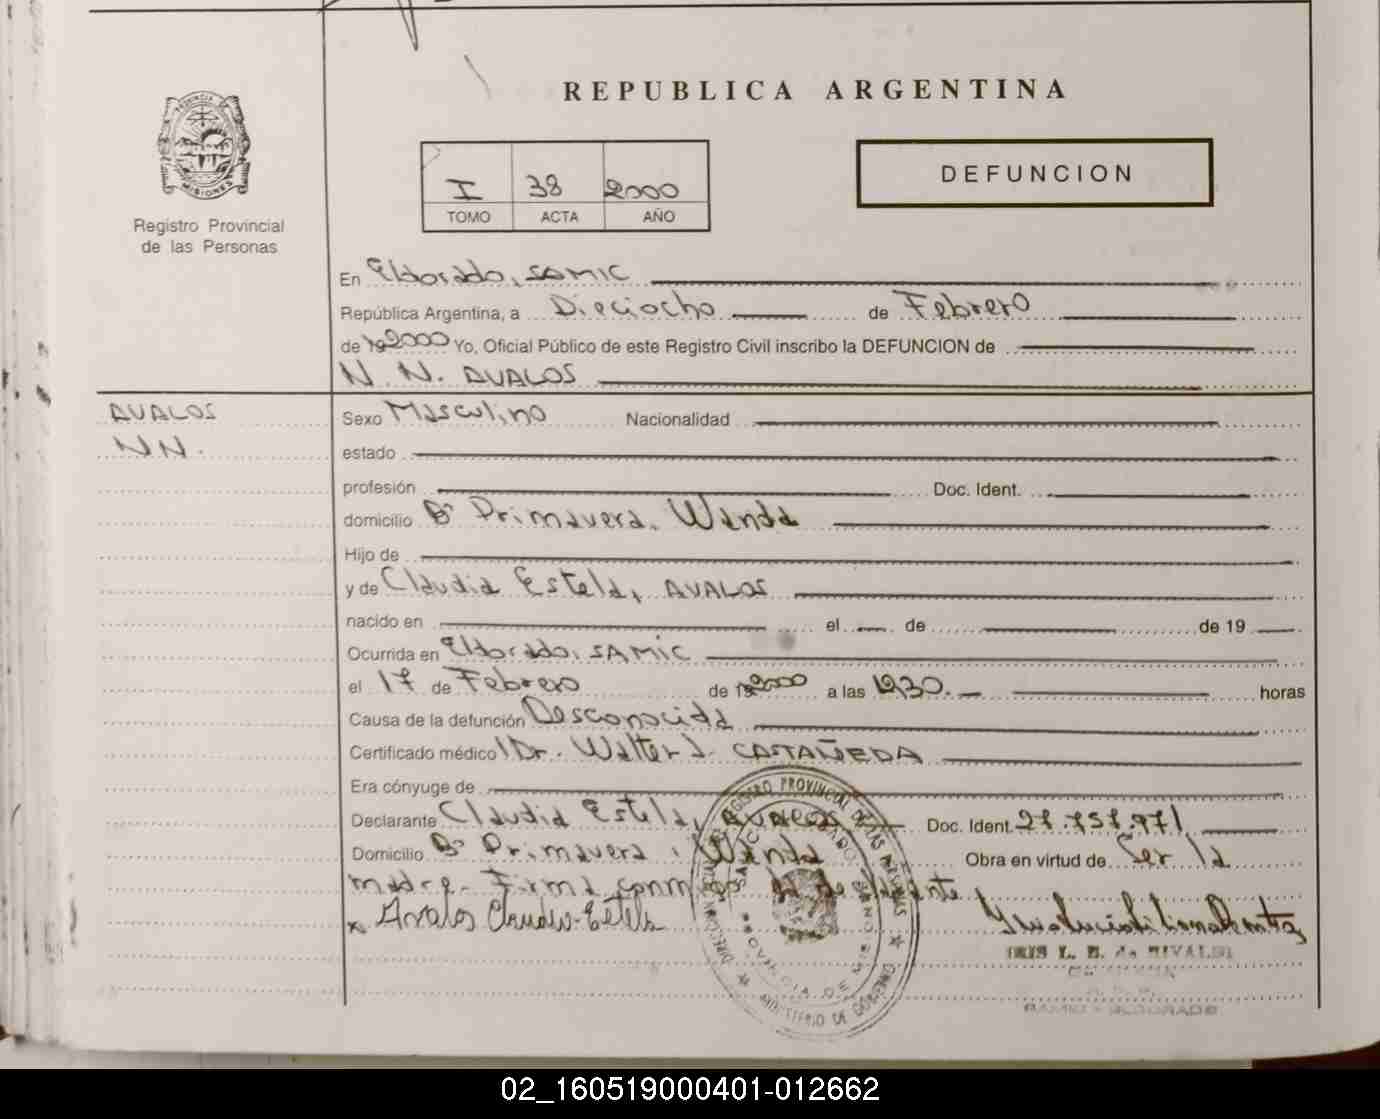 REPUBLICA ARGENTINA
PROVINCIA DE
MISIONES
Registro Provincial
de las Personas
I 38 2000
TOMO ACTA AÑO
DEFUNCION
En Eldorado, SAMIC
República Argentina, a Dieciocho de Febrero
de 192000 Yo, Oficial Público de este Registro Civil inscribo la DEFUNCION de
N. N. AVALOS
AVALOS
NN.
Sexo Masculino Nacionalidad
estado
profesión Doc. Ident.
domicilio Bº Primavera. Wanda
Hijo de
y de Claudia Estela, AVALOS
nacido en el de de 19
Ocurrida en Eldorado, SAMIC
el 17 de Febrero de 192000 a las horas
Causa de la defunción Desconocida
Certificado médico Dr. Walter J. CASTAÑEDA
Era cónyuge de
Declarante Claudia Estela, AVALOS Doc. Ident.
Domicilio Bº Primavera, Wanda Obra en virtud de Ser la
madre. Firma conmigo la declarante
x Avalos Claudia Estela
IRIS L. B. de RIVALDI
SAMIC - ELDORADO
REGISTRO PROVINCIAL DE LAS PERSONAS
MINISTERIO DE GOBIERNO
PROVINCIA DE MISIONES
02_160519000401-012662